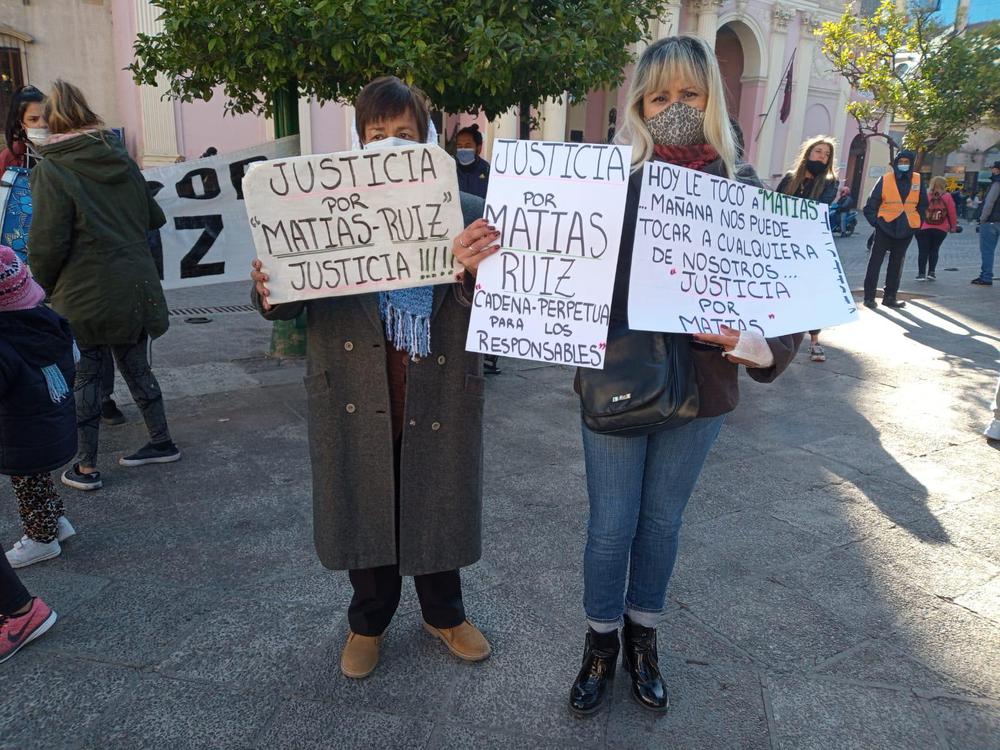 JUSTICIA
POR
"MATIAS-RUIZ"
JUSTICIA !!!!!
JUSTICIA
POR
MATIAS
RUIZ
"CADENA-PERPETUA
PARA LOS
RESPONSABLES"
HOY LE TOCÓ A "MATIAS"
...MAÑANA NOS PUEDE
TOCAR A CUALQUIERA
DE NOSOTROS...
"JUSTICIA
POR
MATIAS"
POR
Z